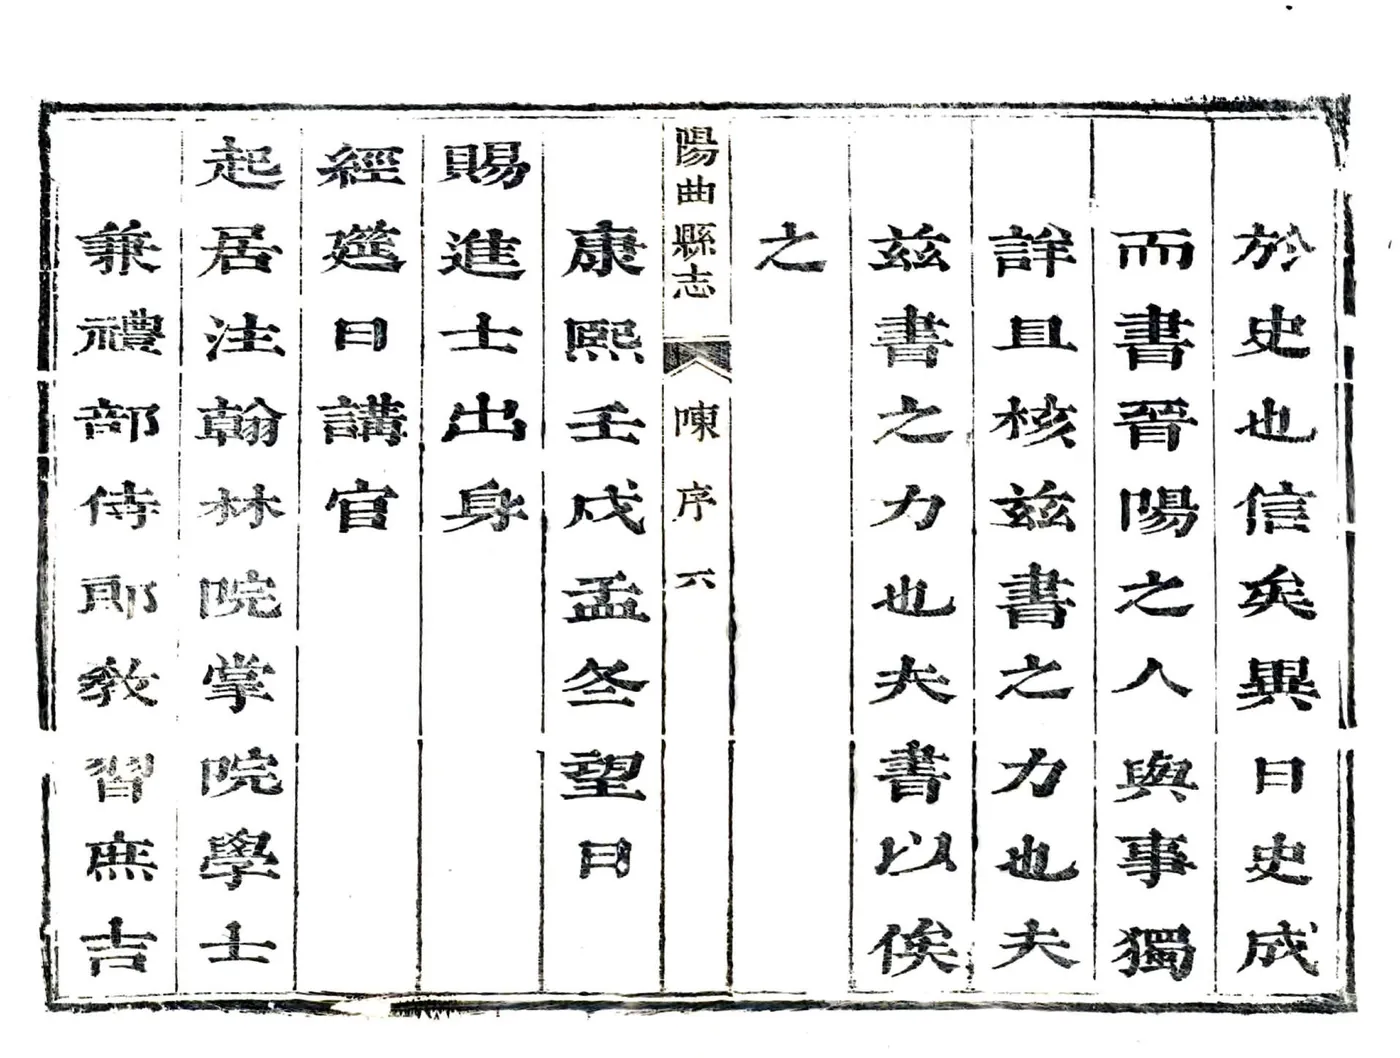 於史也信矣異日史成
而書晉陽之人與事獨
詳且核茲書之力也夫
茲書之力也夫書以俟
之
陽曲縣志
陳序
六
康熙壬戌孟冬望日
賜進士出身
經筵日講官
起居注翰林院掌院學士
兼禮部侍郎教習庶吉